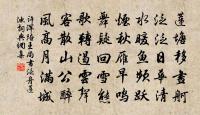 蓮塘移畫舸
泛泛日華清
水暖魚頻躍
煙秋雁早鳴
舞疑迴雪態
歌轉遏雲聲
客散山公醉
風高月滿城
許渾陪王尚書泛舟蓮
池詞典網集